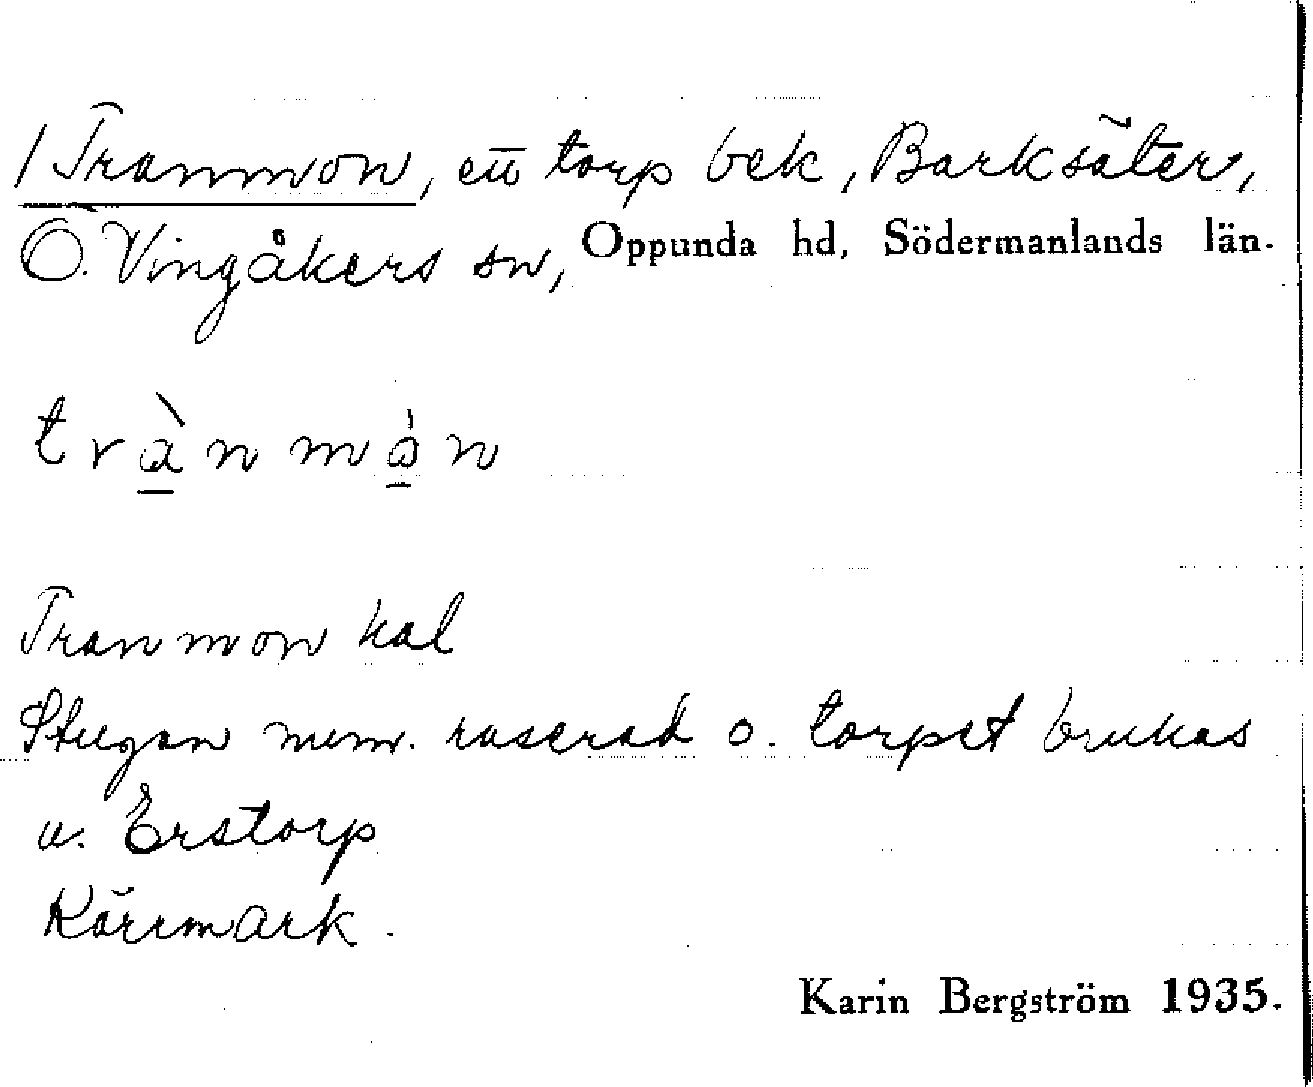 1 Tranmon, ett torp bek, Barksäter,
Ö. Vingåkers sn, Oppunda hd, Södermanlands län.
trànmån
Tranmon kal
Stugan num. raserad o. torpet brukas
u. Erstorp
Kärrmark.
Karin Bergström 1935.